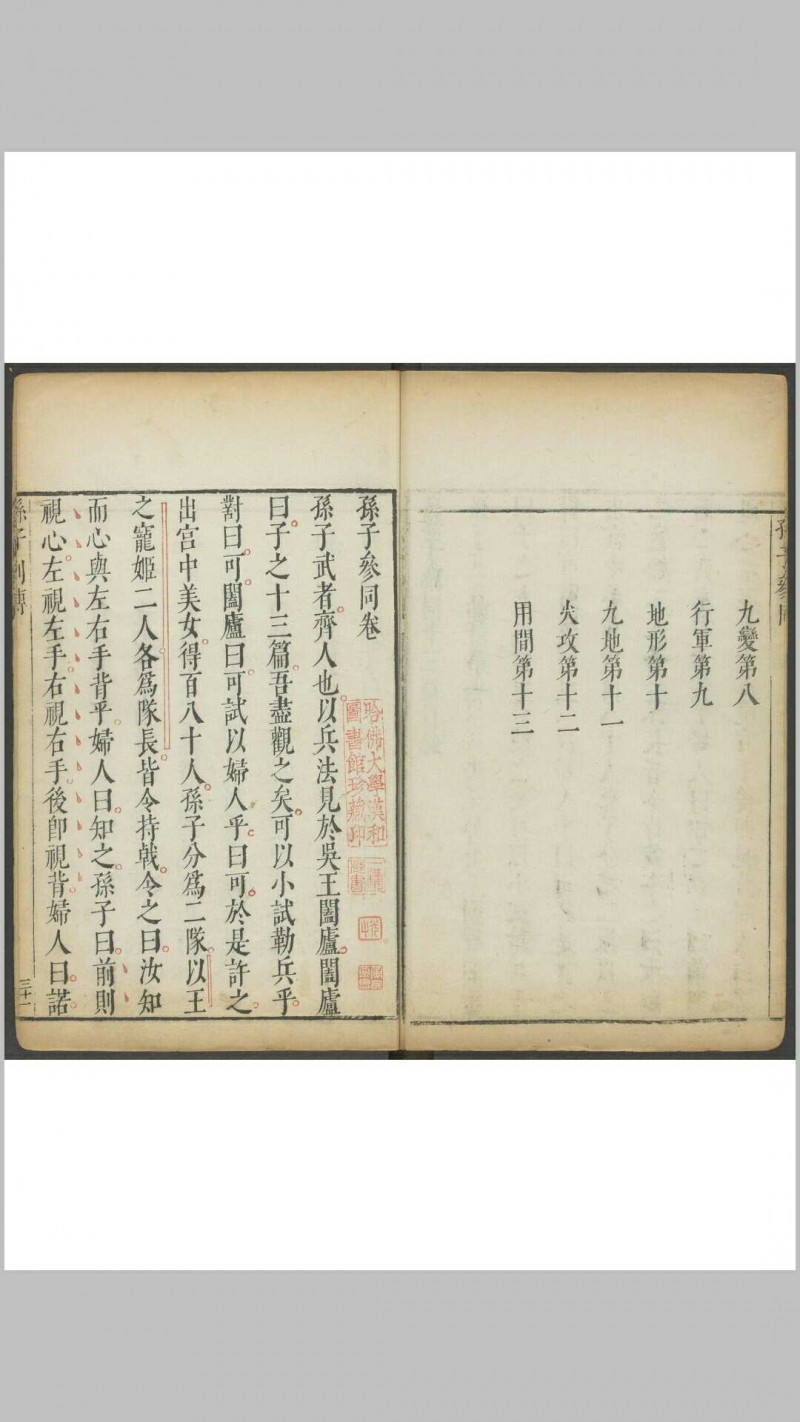 孫子參同
九變第八
行軍第九
地形第十
九地第十一
火攻第十二
用間第十三
孫子參同卷
孫子武者。齊人也。以兵法見於吳王闔廬。闔廬
曰。子之十三篇。吾盡觀之矣。可以小試勒兵乎。
對曰。可。闔廬曰。可試以婦人乎。曰可。於是許之。
出宮中美女。得百八十人。孫子分為二隊。以王
之寵姬二人各爲隊長。皆令持戟。令之曰。汝知
而心與左右手背乎。婦人曰。知之。孫子曰。前則
視心。左視左手。右視右手。後卽視背。婦人曰。諾。
孫子列傳
三十一
哈佛大學漢和
圖書館珍藏印